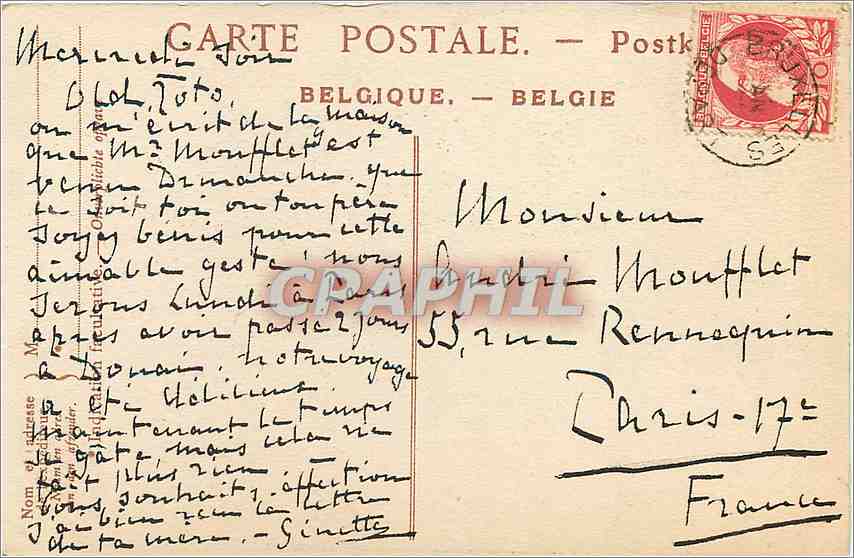 CARTE POSTALE. — Postk
BELGIQUE. — BELGIE
Mercredi soir
Old Toto,
on m'écrit de la maison
que Mr Moufflet est
venu Dimanche. que
ce soit toi ou ton père
soyez bénis pour cette
aimable geste! nous
serons Lundi à Paris
après avoir passé 2 jours
à Douai. notre voyage
a été délicieux.
maintenant le temps
se gâte mais cela ne
fait plus rien
bons souhaits. affection
j'ai bien reçu la lettre
de ta mère. — Ginette
Monsieur
André Moufflet
55, rue Rennequin
Paris-17e
France
CRAPHIL
Nom et adresse
Indication facultative.
BRUXELLES
BELGIË